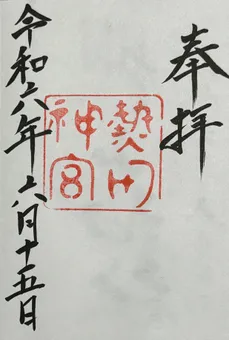 奉拝
熱田
神宮
令和六年六月十五日